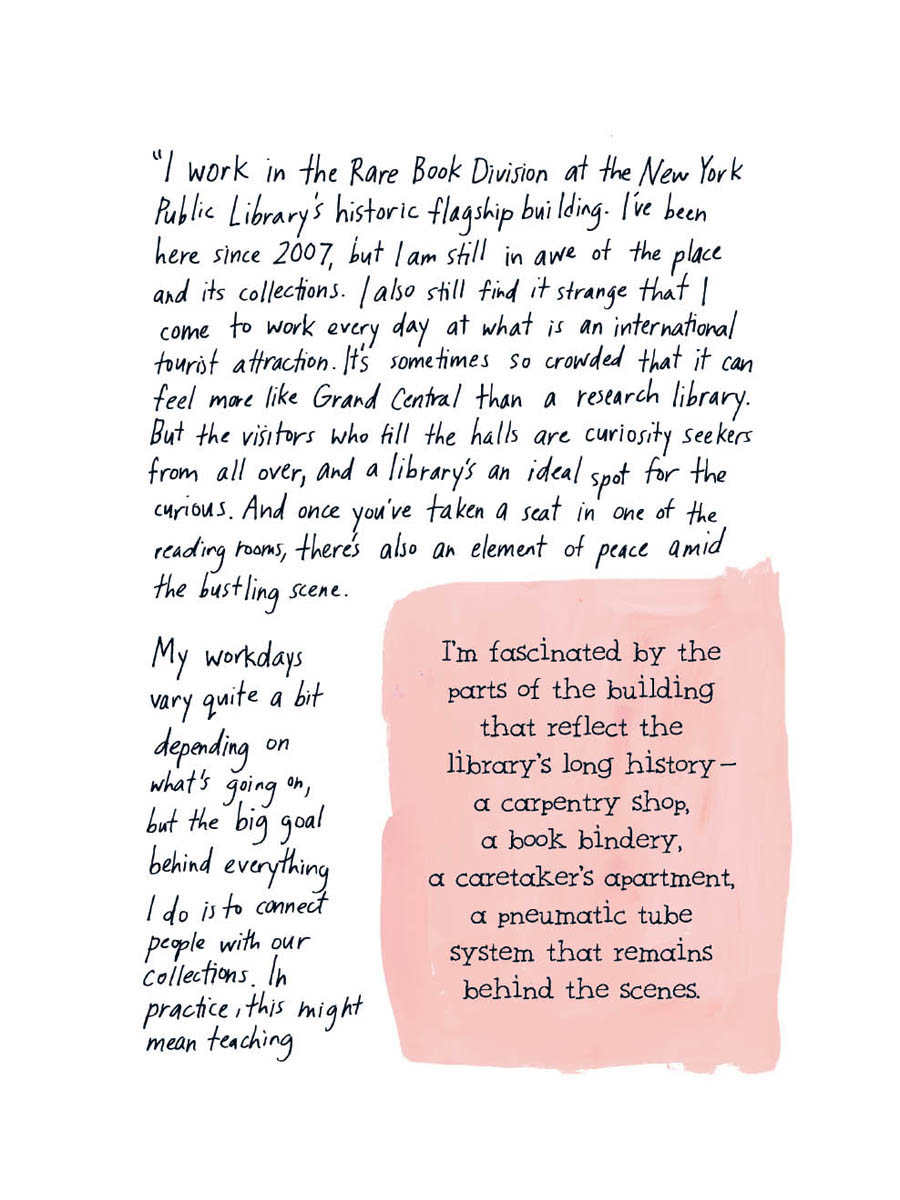 "I work in the Rare Book Division at the New York
Public Library's historic flagship building. I've been
here since 2007, but I am still in awe of the place
and its collections. I also still find it strange that I
come to work every day at what is an international
tourist attraction. It's sometimes so crowded that it can
feel more like Grand Central than a research library.
But the visitors who fill the halls are curiosity seekers
from all over, and a library's an ideal spot for the
curious. And once you've taken a seat in one of the
reading rooms, there's also an element of peace amid
the bustling scene.
My workdays
vary quite a bit
depending on
what's going on,
but the big goal
behind everything
I do is to connect
people with our
collections. In
practice, this might
mean teaching
I'm fascinated by the
parts of the building
that reflect the
library's long history—
a carpentry shop,
a book bindery,
a caretaker's apartment,
a pneumatic tube
system that remains
behind the scenes.